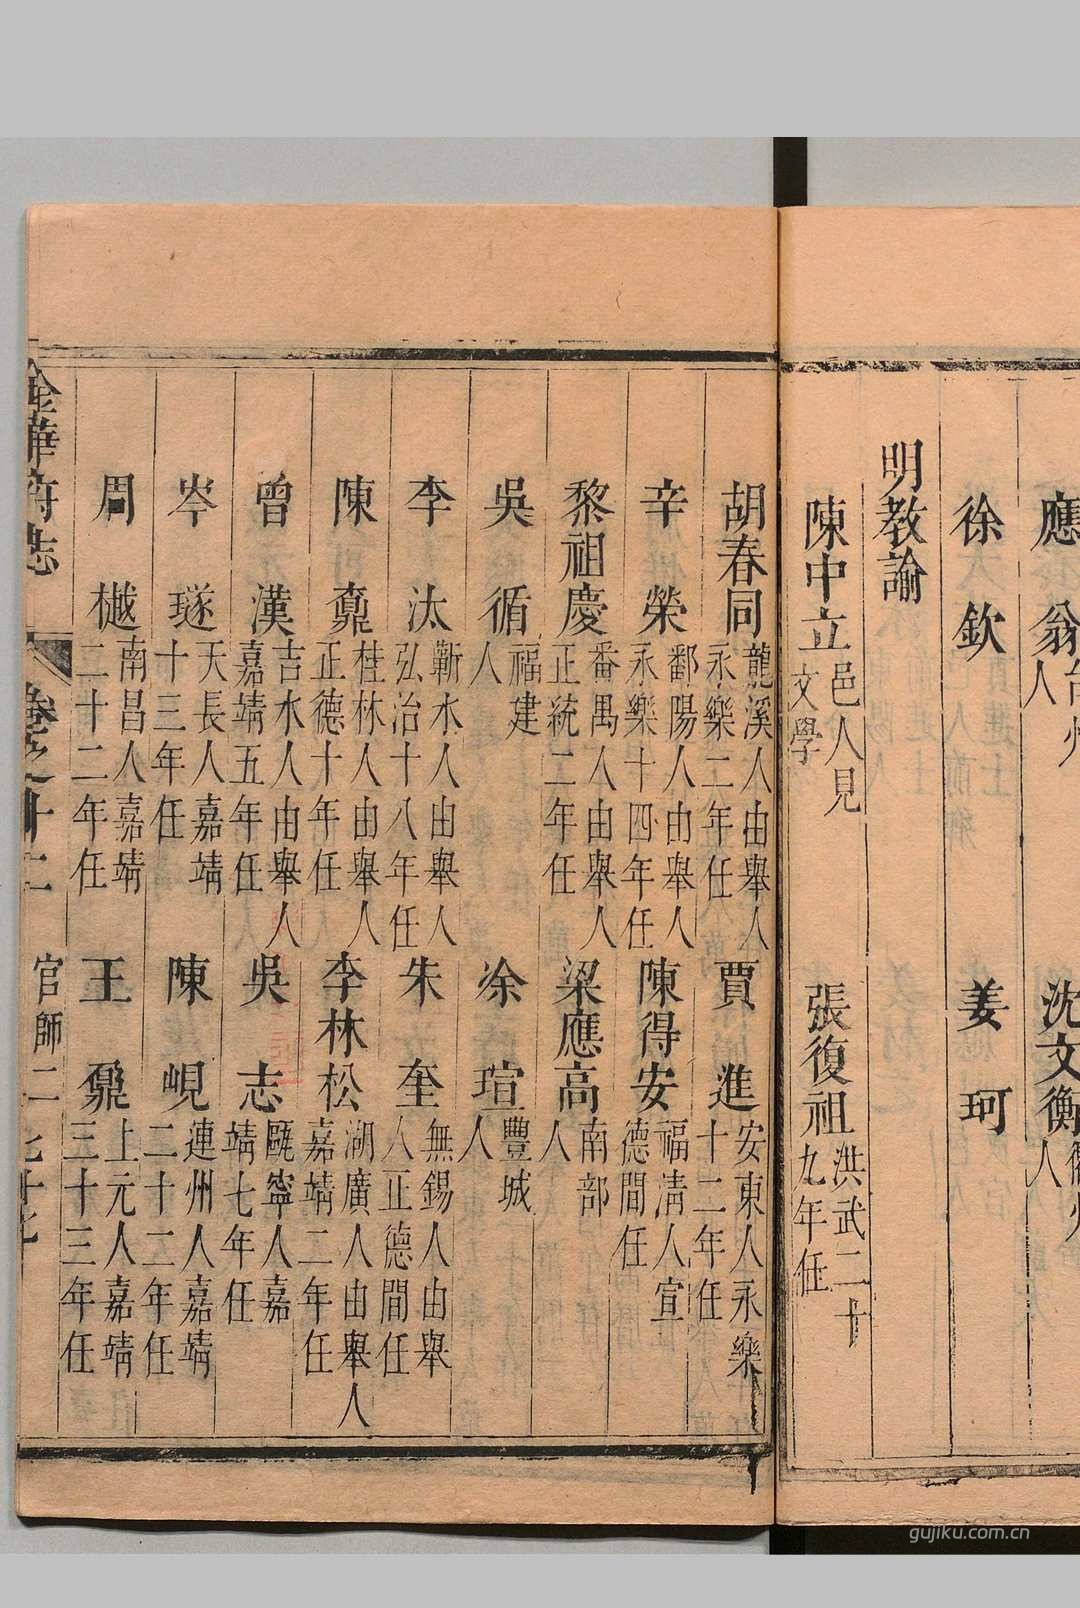 應　翁台州人　沈文衡衢州人
徐　欽　姜　珂
明教諭
陳中立邑人見文學　張復祖洪武二十九年任
胡春同龍溪人由舉人永樂二年任　賈　進安東人永樂十二年任
辛　榮鄱陽人由舉人永樂十四年任　陳得安福清人宣德間任
黎祖慶番禺人由舉人正統二年任　梁應高南部人
吳　循福建人　涂　瑄豐城人
李　汰蘄水人由舉人弘治十八年任　朱　奎無錫人由舉人正德間任
陳　鼐桂林人由舉人正德十年任　李林松湖廣人由舉人嘉靖二年任
曾　漢吉水人由舉人嘉靖五年任　吳　志甌寧人嘉靖七年任
岑　璲天長人嘉靖十三年任　陳　峴連州人嘉靖二十二年任
周　樾南昌人嘉靖二十二年任　王　鼐上元人嘉靖三十三年任
金華府志　卷之十二　官師二
gujiku.com.cn